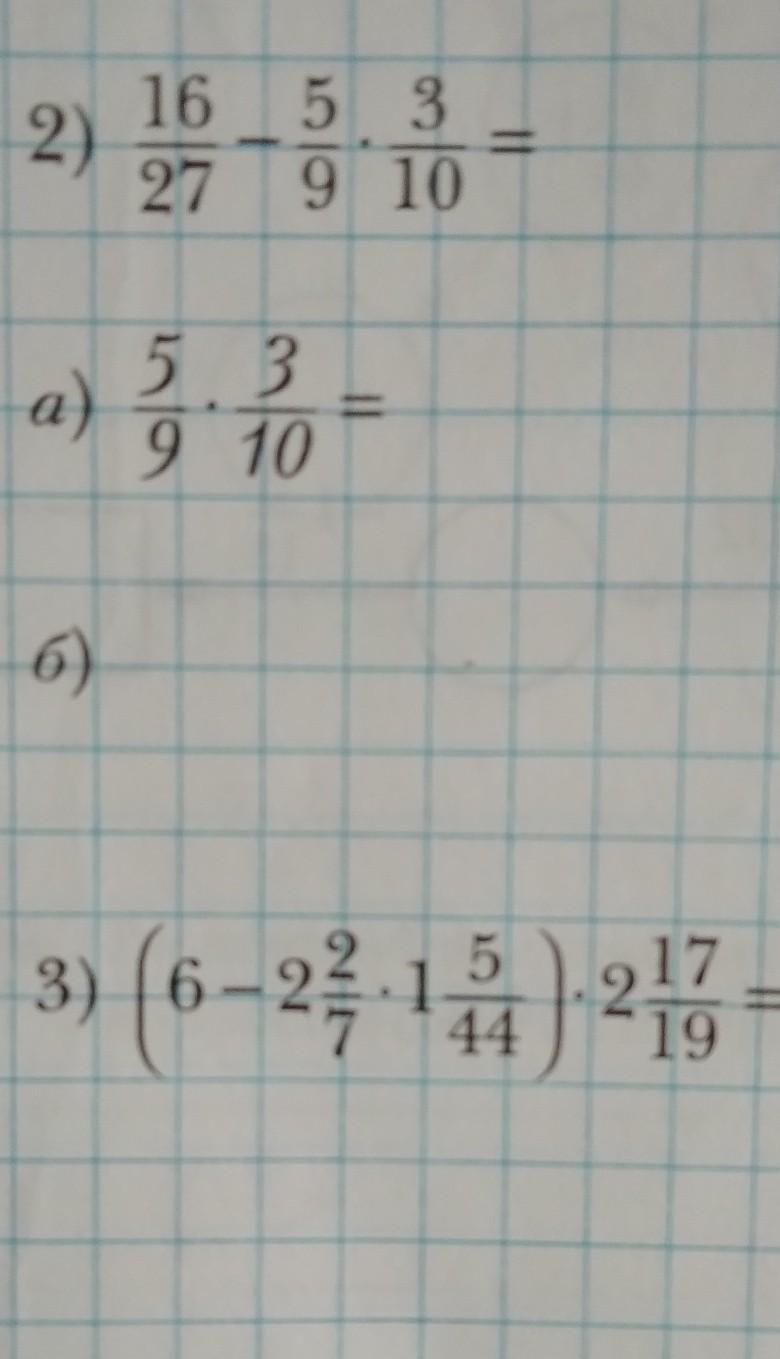 2) 16/27 − 5/9 · 3/10 =
а) 5/9 · 3/10 =
б)
3) (6 − 2 2/7 · 1 5/44) · 2 17/19 =